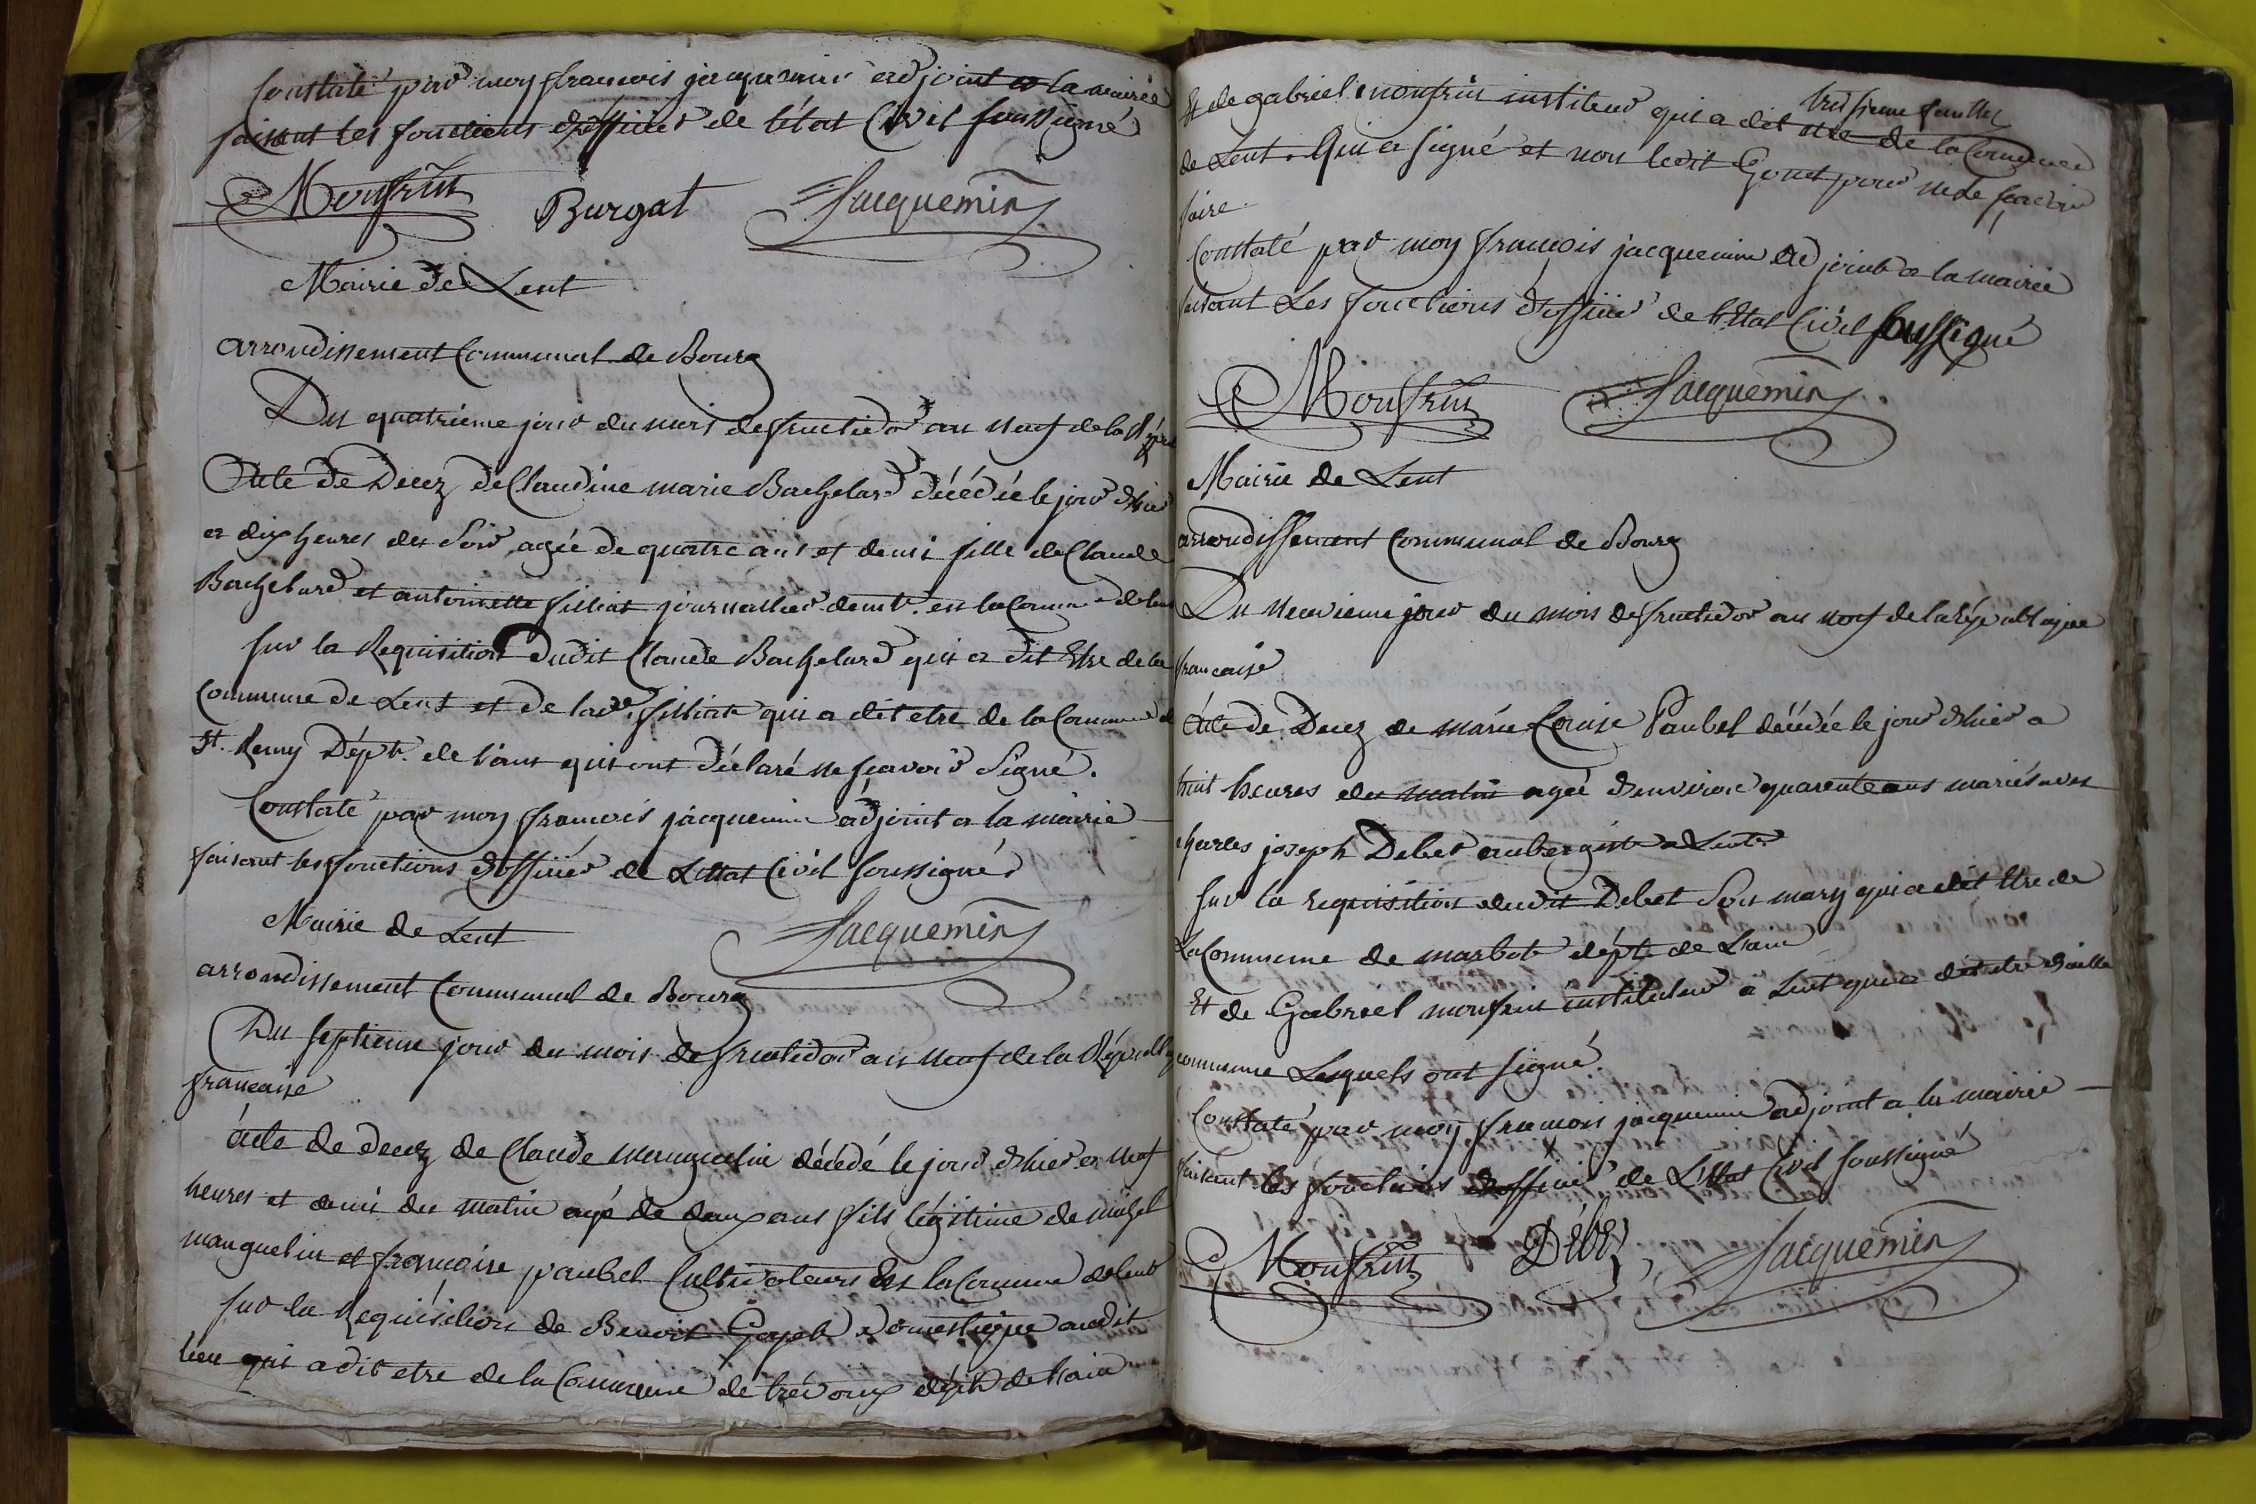 Constaté par moy francois jacquemin adjoint a la mairie
faisant les fonctions d'officier de l'état Civil soussigné
Monfrin Burgat Jacquemin
Mairie de Lent
arrondissement Communal de Bourg
Du quatrieme jour du mois de fructidor an neuf de la Répu
Acte de Decez de Claudine marie Bachelard décédée le jour d'hier
a dix heures du Soir agée de quatre ans et demi fille de Claude
Bachelard et antoinette filliat journallier demt. en la Comune de lent
sur la Requisition dudit Claude Bachelard qui a dit Etre de la
Commune de Lent et de lade. filliat qui a dit etre de la Commune de
St. Remy Dépt. de l'ain qui ont déclaré ne scavoir Signé.
Constaté par moy francois jacquemin adjoint a la mairie
faisant les fonctions d'officier de L'Etat Civil soussigné
Mairie de Lent Jacquemin
arrondissement Communal de Bourg
Du septieme jour du mois de fructidor an neuf de la Républiq
francaise
Acte de decez de Claude manguelin décédé le jour d'hier a neuf
heures et demi du matin agé de deux ans fils légitime de michel
manguelin et francoise paubel Cultivateurs En la Comune de lent
sur la Requisition de Benoit Goyet domestique audit
lieu qui a dit etre de la Commune de trévoux dépt. de l'ain
troisieme feuillet
Et de gabriel monfrin institeur qui a dit etre de la Commune
de Lent. Qui a signé et non ledit Gonet pour ne le scavoir
faire.
Constaté par moy francois jacquemin adjoint a la mairie
faisant Les fonctions d'officier de l'Etat Civil soussigné
Monfrin Jacquemin
Mairie de Lent
arrondissement Communal de Bourg
Du neuvieme jour du mois de fructidor an neuf de la République
francaise
Acte de Decez de marie Louise Paubel décédée le jour d'hier a
huit heures du matin agée d'environ quarente ans mariés avec
charles joseph Debet aubergiste a Lent
sur la requisition dudit Debet son mary qui a dit Etre de
La Commune de marbot dépt. de L'ain
Et de Gabriel monfrin instituteur a Lent qui a dit etre de ville
commune Lesquels ont signé.
Constaté par moy francois jacquemin adjoint a la mairie
faisant les fonctions d'officier de L'Etat Civil soussigné
Monfrin Débez Jacquemin